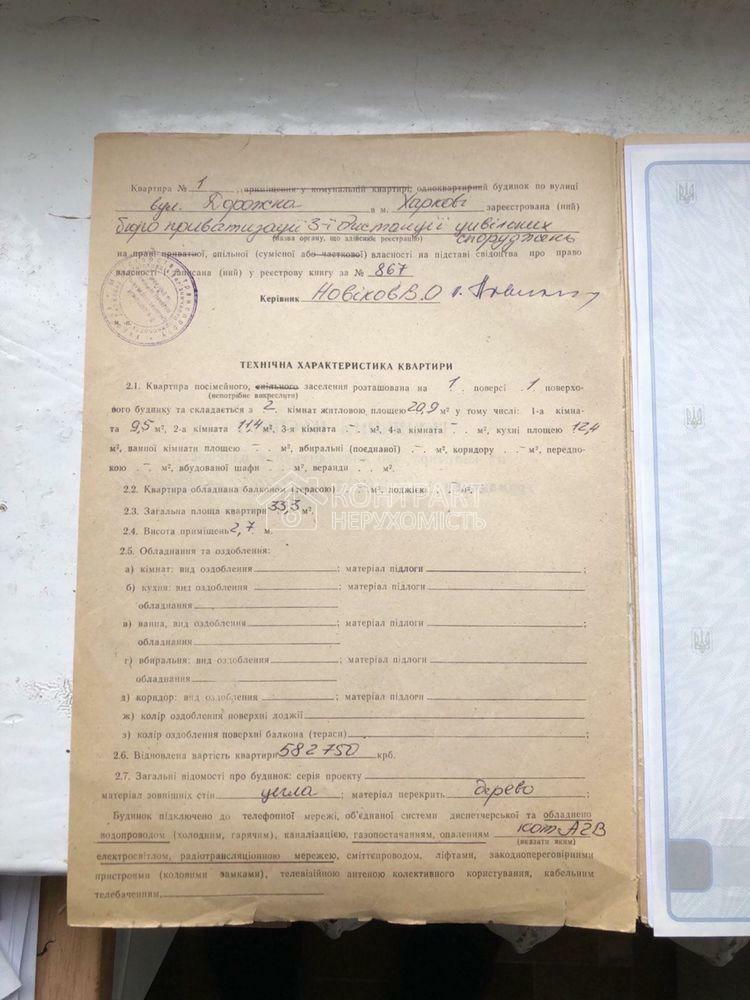 Квартира № 1, приміщення у комунальній квартирі, одноквартирний будинок по вулиці
вул. Дорожна в м. Харкові зареєстрована (ний)
бюро приватизації 3-ї дистанції цивільних
(назва органу, що здійснює реєстрацію) споруджень
на праві приватої, спільної (сумісної або часткової) власності на підставі свідоцтва про право
власності і записана (ний) у реєстрову книгу за № 867
Керівник Новіков В.О
ТЕХНІЧНА ХАРАКТЕРИСТИКА КВАРТИРИ
2.1. Квартира посімейного, спільного заселення розташована на 1 поверсі 1 поверхо-
(непотрібне викреслити)
вого будинку та складається з 2 кімнат житловою площею 20,9 м² у тому числі: 1-а кімна-
та 9,5 м², 2-а кімната 11,4 м², 3-я кімната – м², 4-а кімната – м², кухні площею 12,4
м², ванної кімнати площею – м², вбиральні (поєднаної) – м², коридору – м², передпо-
кою – м², вбудованої шафи м², веранди м².
2.2. Квартира обладнана балконом (терасою) м², лоджією м².
2.3. Загальна площа квартири 33,3 м².
2.4. Висота приміщень 2,7 м.
КОНТРАКТ
НЕРУХОМІСТЬ
2.5. Обладнання та оздоблення:
а) кімнат: вид оздоблення ; матеріал підлоги ;
б) кухня: вид оздоблення ; матеріал підлоги
обладнання
в) ванна, вид оздоблення ; матеріал підлоги ;
обладнання
г) вбиральня: вид оздоблення ; матеріал підлоги
обладнання
д) коридор: вид оздоблення ; матеріал підлоги
ж) колір оздоблення поверхні лоджії
з) колір оздоблення поверхні балкона (тераси) ;
2.6. Відновлена вартість квартири 582750 крб.
2.7. Загальні відомості про будинок: серія проекту
матеріал зовнішніх стін цегла ; матеріал перекрить дерево ;
Будинок підключено до телефонної мережі, об'єднаної системи диспетчерської та обладнено
водопроводом (холодним, гарячим), каналізацією, газопостачанням, опаленням кот. АГВ
(вказати яким)
електросвітлом, радіотрансляціонною мережею, сміттєпроводом, ліфтами, закодноперегові­рними
пристроями (кодовими замками), телевізійною антеною колективного користування, кабельним
телебаченням,